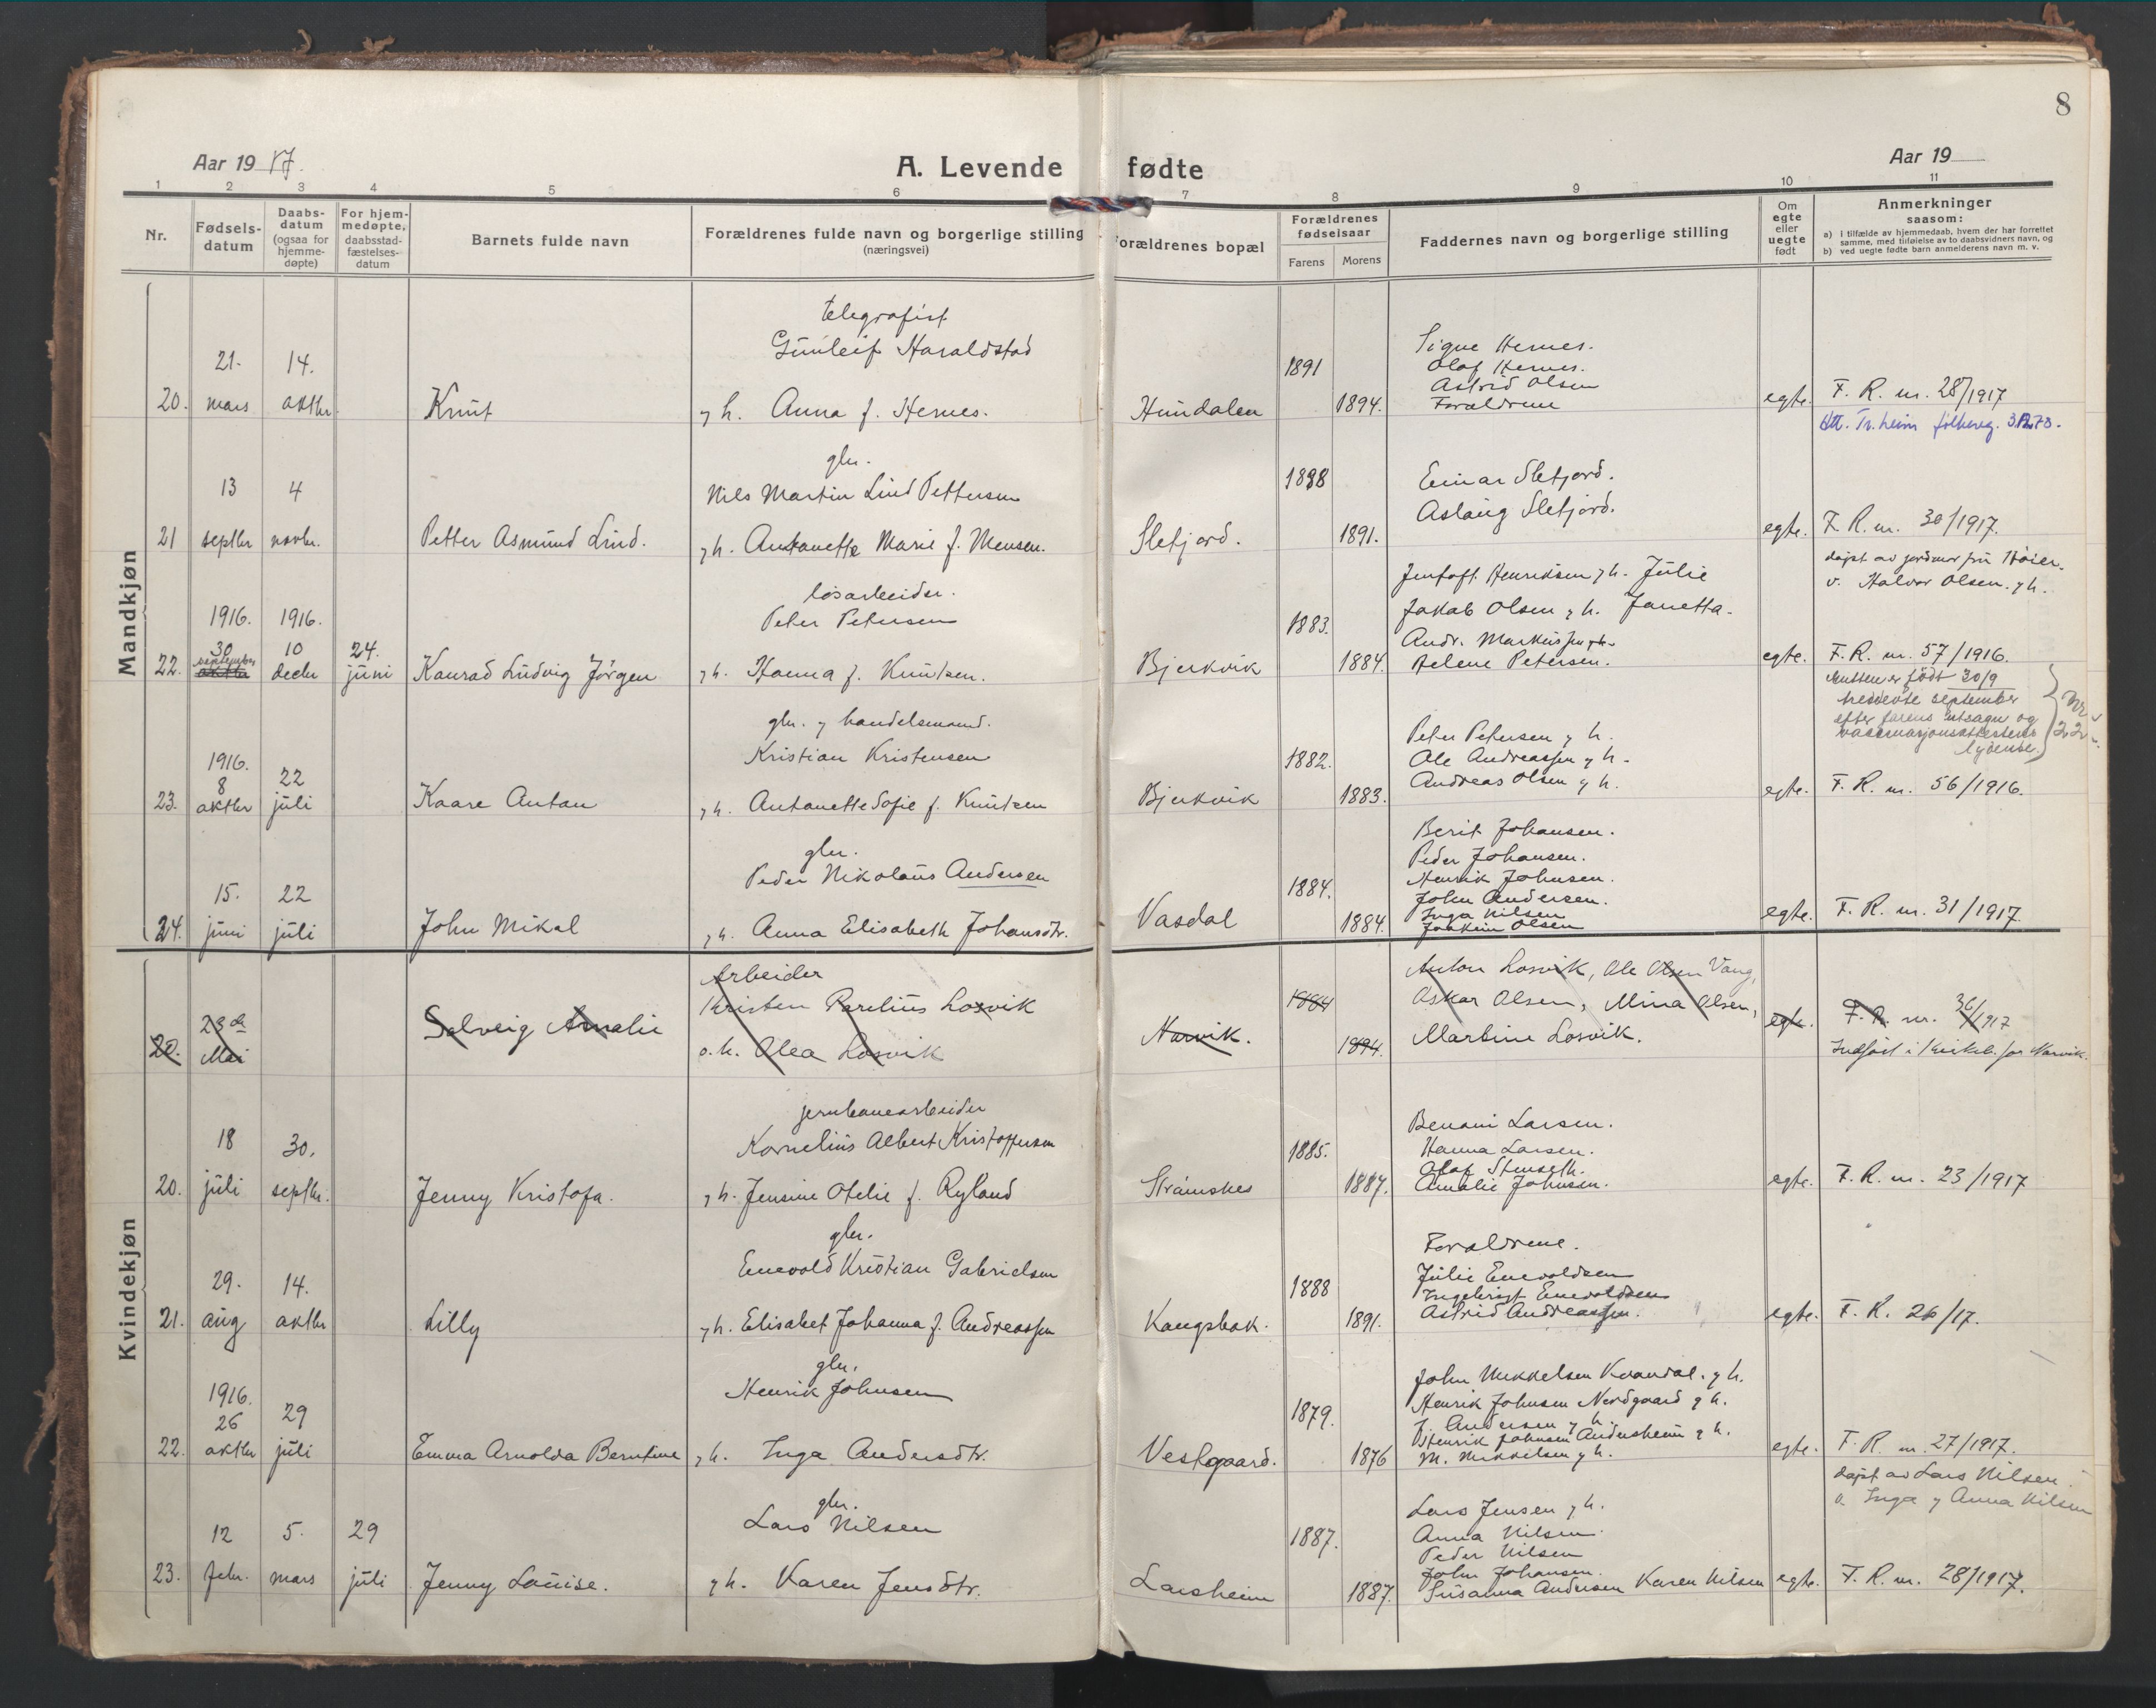 8
Aar 19 17.
A. Levende fødte
Aar 19
1 2 3 4 5 6 7 8 9 10 11
Nr.
Fødsels-
datum
Daabs-
datum
(ogsaa for
hjemme-
døpte)
For hjem-
medøpte,
daabsstad-
fæstelses-
datum
Barnets fulde navn
Forældrenes fulde navn og borgerlige stilling
(næringsvei)
Forældrenes bopæl
Forældrenes
fødselsaar
Farens Morens
Faddernes navn og borgerlige stilling
Om
egte
eller
uegte
født
Anmerkninger
saasom:
a) i tilfælde av hjemmedaab, hvem der har forrettet
samme, med tilføielse av to daabsvidners navn, og
b) ved uegte fødte barn anmelderens navn m. v.
Mandkjøn
20.
21.
mars
14.
oktbr.
Knut
telegrafist
Gunleif Haraldstad
y h. Anna f. Hernes.
Hundalen
1891
1894.
Signe Hernes.
Olaf Hernes.
Astrid Olsen
Forældrene
egte.
F. R. nr. 28/1917
Att. Tr.heim folkereg.
21
13
septbr
4
novbr.
Petter Asmund Lind.
gbr.
Nils Martin Lind Pettersen
y h. Antonette Marie f. Mensen.
Sletjord.
1888
1891.
Einar Sletjord.
Aslaug Sletjord.
egte.
F. R. nr. 30/1917.
døpt av jordmor fru Høier.
v. Halvor Olsen y h.
22.
1916.
30
september
oktbr
1916.
10
decbr
24.
juni
Konrad Ludvig Jørgen
løsarbeider.
Peter Petersen
y h. Hanna f. Knutsen.
Bjerkvik
1883.
1884.
Jentoft Henriksen y h. Julie
Jakob Olsen y h. Janetta.
Andr. Markussen y h.
Helene Petersen.
egte.
F. R. nr. 57/1916.
Gutten er født 30/9
tredievte september
efter farens utsagn og
vaksinasjonsattestens
lydende.
Nr
22
23.
1916.
8
oktbr
22
juli
Kaare Anton
gbr. y handelsmand.
Kristian Kristensen
y h. Antonette Sofie f. Knutsen
Bjerkvik
1882.
1883.
Peter Petersen y h.
Ole Andreassen y h.
Andreas Olsen y h.
egte.
F. R. nr. 56/1916.
24.
15.
juni
22
juli
John Mikal
gbr.
Peder Nikolaus Andersen
y h. Anna Elisabeth Johansdtr.
Vasdal
1884.
1884.
Berit Johansen.
Peder Johansen.
Henrik Johnsen.
John Andersen.
Inga Nilsen
Joakim Olsen
egte.
F. R. nr. 31/1917.
Kvindekjøn
20.
23de
Mai
Solveig Amalie
Arbeider
Kristen Parelius Losvik
o. h. Olea Losvik
Narvik.
1884
1894.
Anton Losvik, Ole Olsen Vang,
Oskar Olsen, Mina Olsen,
Martine Losvik.
egte.
F. R. nr. 36/1917
Indført i Kirkeb. for Narvik.
20.
18
juli
30.
septbr.
Jenny Kristofa.
jernbanearbeider
Kornelius Albert Kristoffersen
y h. Jensine Otelie f. Ryland
Straumsnes
1885.
1887.
Benoni Larsen.
Hanna Larsen.
Olaf Stenseth.
Amalie Johnsen.
egte.
F. R. nr. 23/1917
21.
29.
aug
14.
oktbr
Lilly
gbr.
Enevold Kristian Gabrielsen
y h. Elisabet Johanna f. Andreassen
Kongsbak.
1888
1891.
Forældrene.
Julie Enevoldsen
Ingebrigt Enevoldsen
Astrid Andreassen.
egte.
F. R. 26/17.
22.
1916.
26
oktbr
29
juli
Emma Arnolda Berntine
gbr.
Henrik Johnsen
y h. Inga Andersdtr.
Vestgaard.
1879.
1876
John Mikkelsen Kvandal. y h.
Henrik Johnsen Nordgaard y h.
J. Andersen y h.
Henrik Johnsen Andersheim y h.
M. Mikkelsen y h.
egte.
F. R. nr. 27/1917.
døpt av Lars Nilsen
v. Inga y Anna Nilsen
23.
12
febr.
5.
mars
29
juli
Jenny Louise.
gbr.
Lars Nilsen
y h. Karen Jensdtr.
Larsheim
1887.
1887.
Lars Jensen y h.
Anna Nilsen.
Peder Nilsen
John Johansen.
Susanna Andersen Karen Nilsen
egte.
F. R. nr. 28/1917.